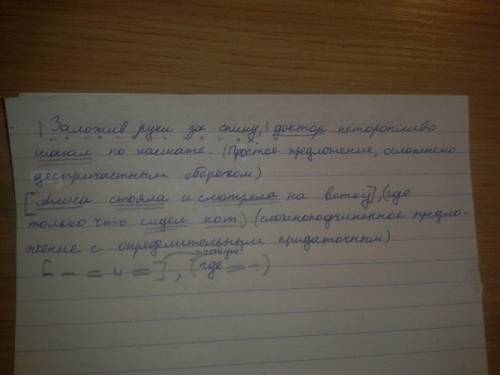 | Заложив руки за спину,| доктор неторопливо
шагал по комнате. (Простое предложение, осложнено
деепричастным оборотом)
[Алиса стояла и смотрела на ветку],(где
только что сидел кот.) (сложноподчиненное предло-
жение с определительным придаточным)
какую?
[- — = и =], (где = —)